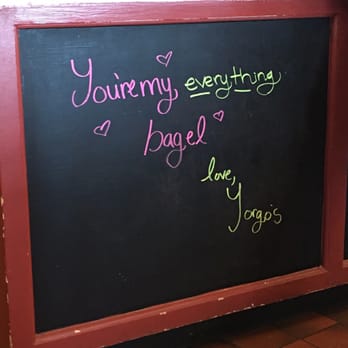 You're my everything
bagel
love,
Yorgo's